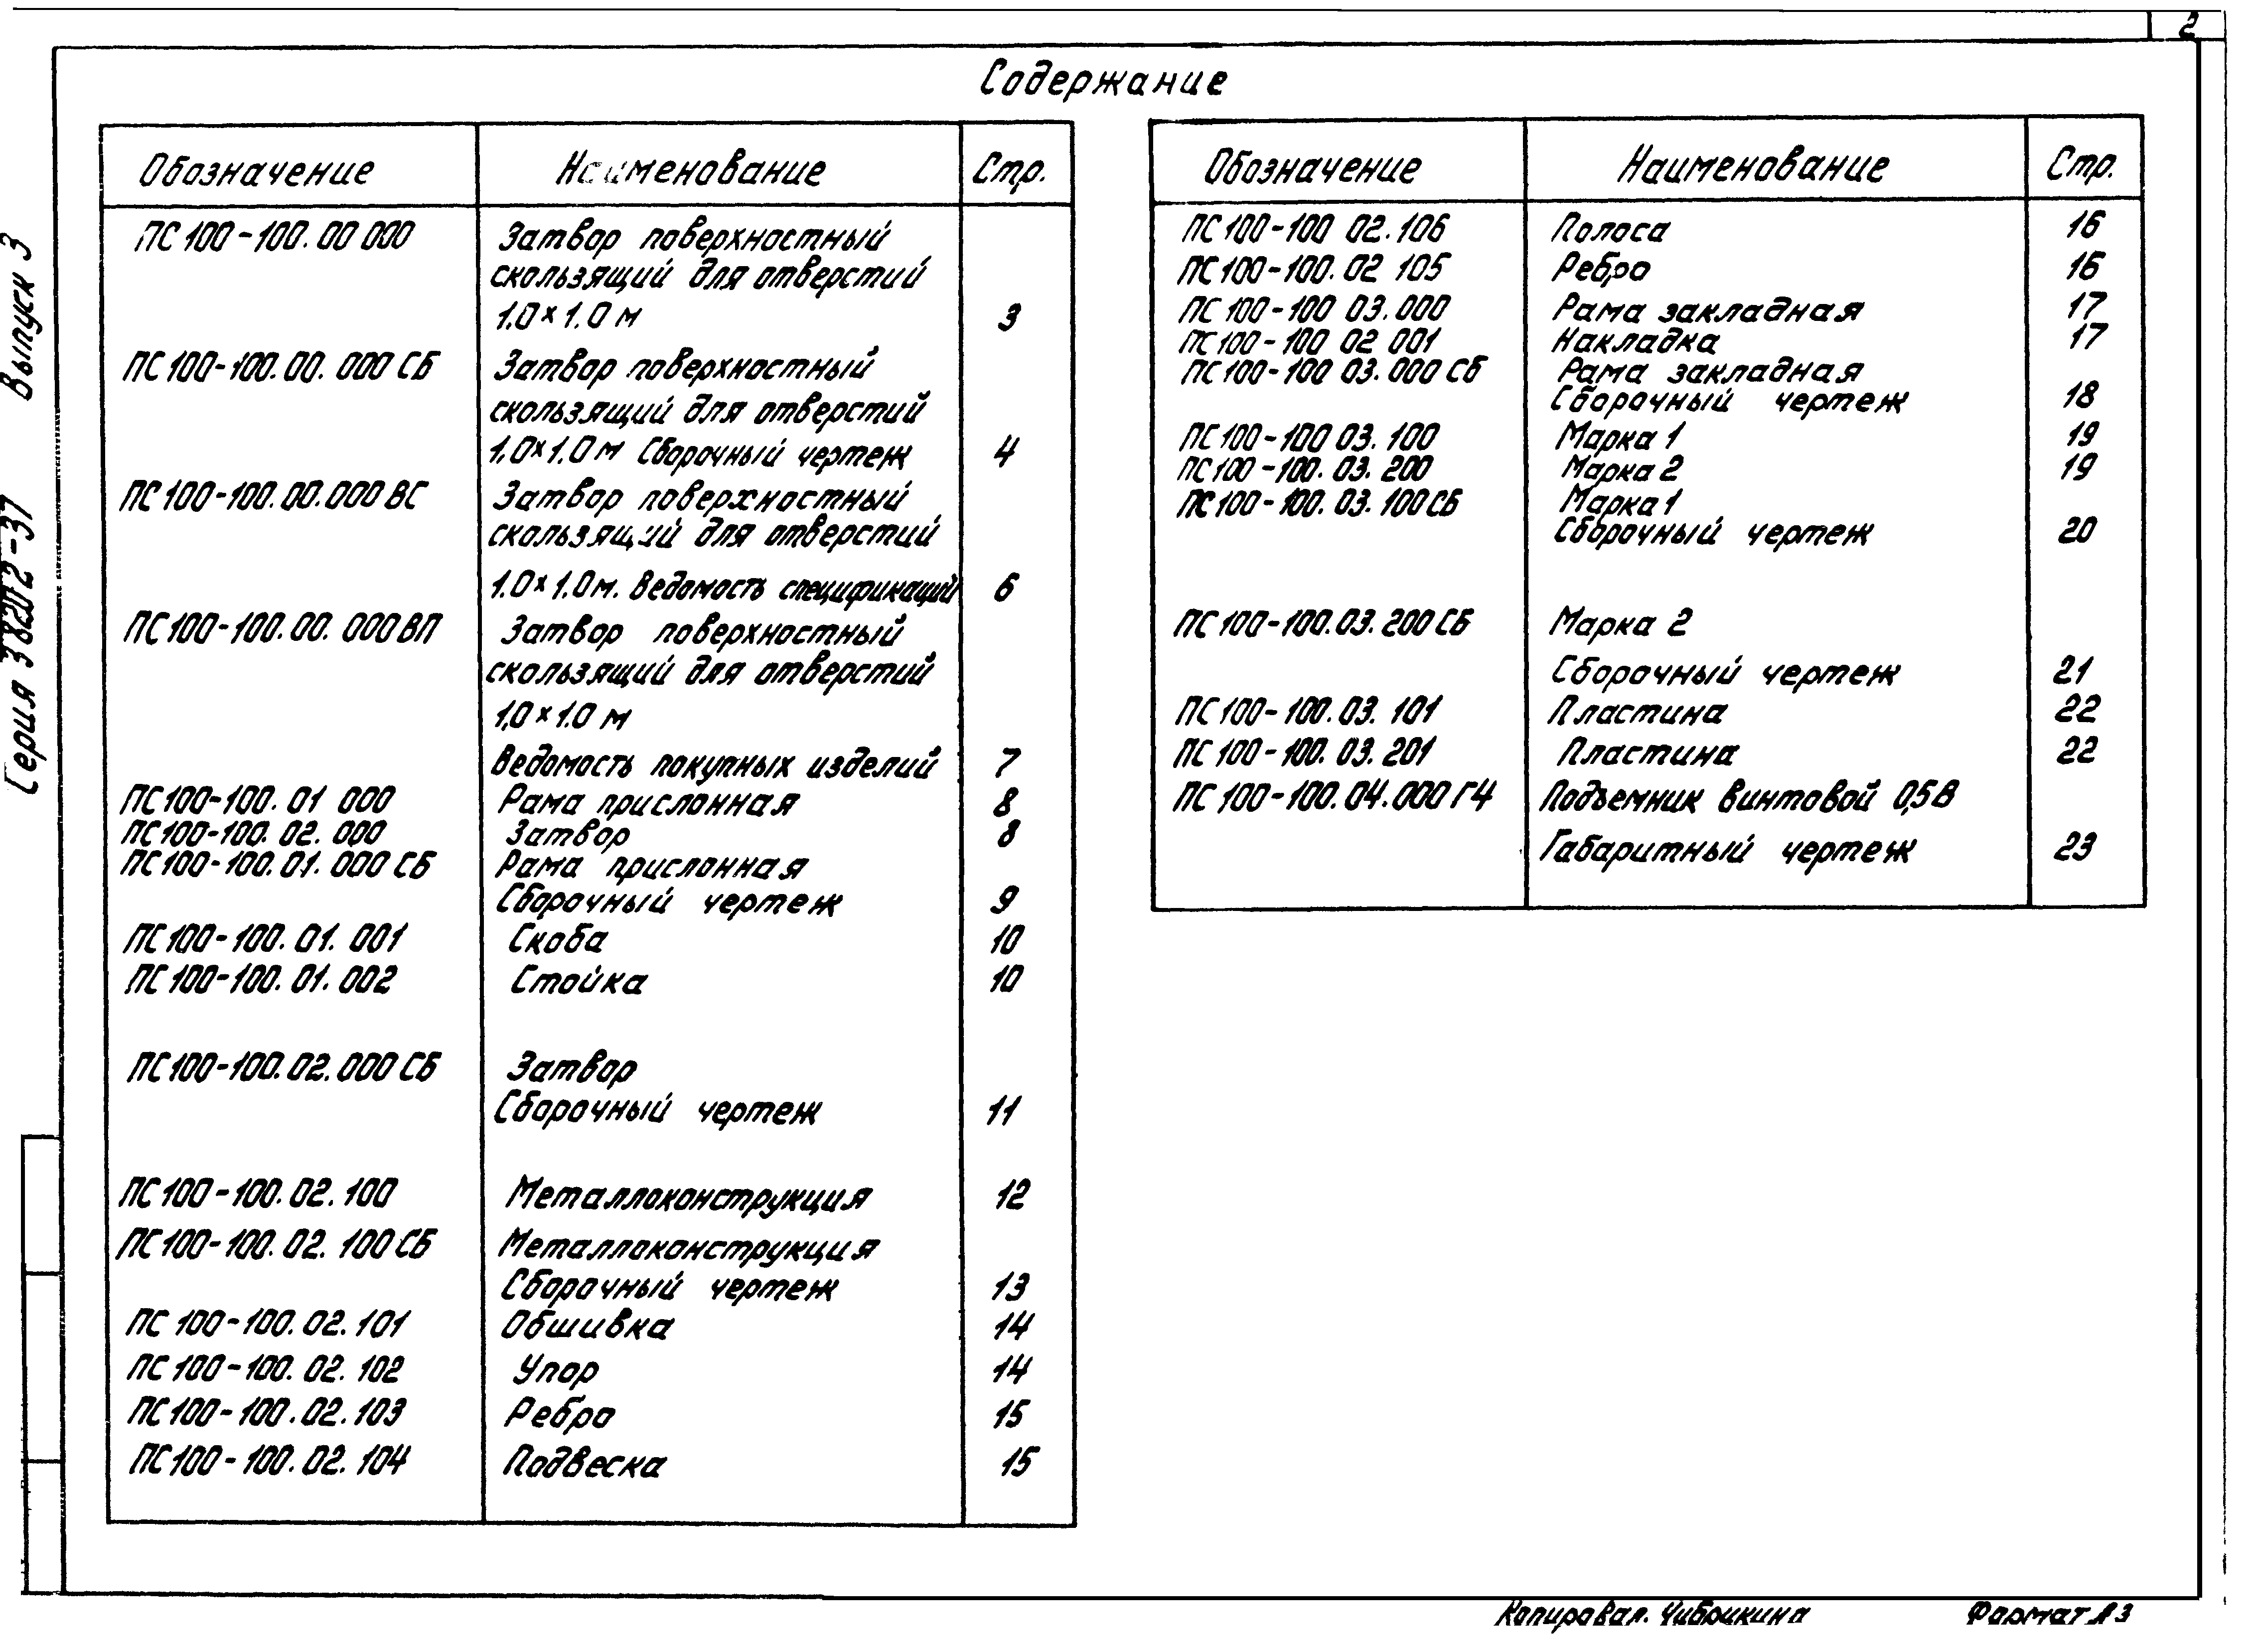 2
Содержание
Серия 3 820 2-37 Выпуск 3
Обозначение Наименование Стр.
ПС 100-100.00 000 Затвор поверхностный
скользящий для отверстий
1.0×1.0 м 3
ПС 100-100.00. 000 СБ Затвор поверхностный
скользящий для отверстий
1.0×1.0 м Сборочный чертеж 4
ПС 100-100.00.000 ВС Затвор поверхностный
скользящий для отверстий
1.0×1.0 м. Ведомость спецификаций 6
ПС 100-100.00. 000 ВП Затвор поверхностный
скользящий для отверстий
1.0×1.0 м
Ведомость покупных изделий 7
ПС 100-100. 01 000 Рама прислонная 8
ПС 100-100. 02. 000 Затвор 8
ПС 100-100.01. 000 СБ Рама прислонная
Сборочный чертеж 9
ПС 100-100. 01. 001 Скоба 10
ПС 100-100. 01. 002 Стойка 10
ПС 100-100.02.000 СБ Затвор
Сборочный чертеж 11
ПС 100-100.02. 100 Металлоконструкция 12
ПС 100-100.02. 100 СБ Металлоконструкция
Сборочный чертеж 13
ПС 100-100.02.101 Обшивка 14
ПС 100-100.02. 102 Упор 14
ПС 100-100.02.103 Ребро 15
ПС 100-100.02. 104 Подвеска 15
Обозначение Наименование Стр.
ПС 100-100 02.106 Полоса 16
ПС 100-100.02 105 Ребро 16
ПС 100-100 03.000 Рама закладная 17
ПС 100-100 02 001 Накладка 17
ПС 100-100 03.000 СБ Рама закладная
Сборочный чертеж 18
ПС 100-100 03. 100 Марка 1 19
ПС 100-100. 03. 200 Марка 2 19
ПС 100-100. 03. 100 СБ Марка 1
Сборочный чертеж 20
ПС 100-100.03. 200 СБ Марка 2
Сборочный чертеж 21
ПС 100-100.03. 101 Пластина 22
ПС 100-100. 03. 201 Пластина 22
ПС 100-100.04.000 ГЧ Подъемник винтовой 0,5В
Габаритный чертеж 23
Копировал. Чибрикина Формат А3